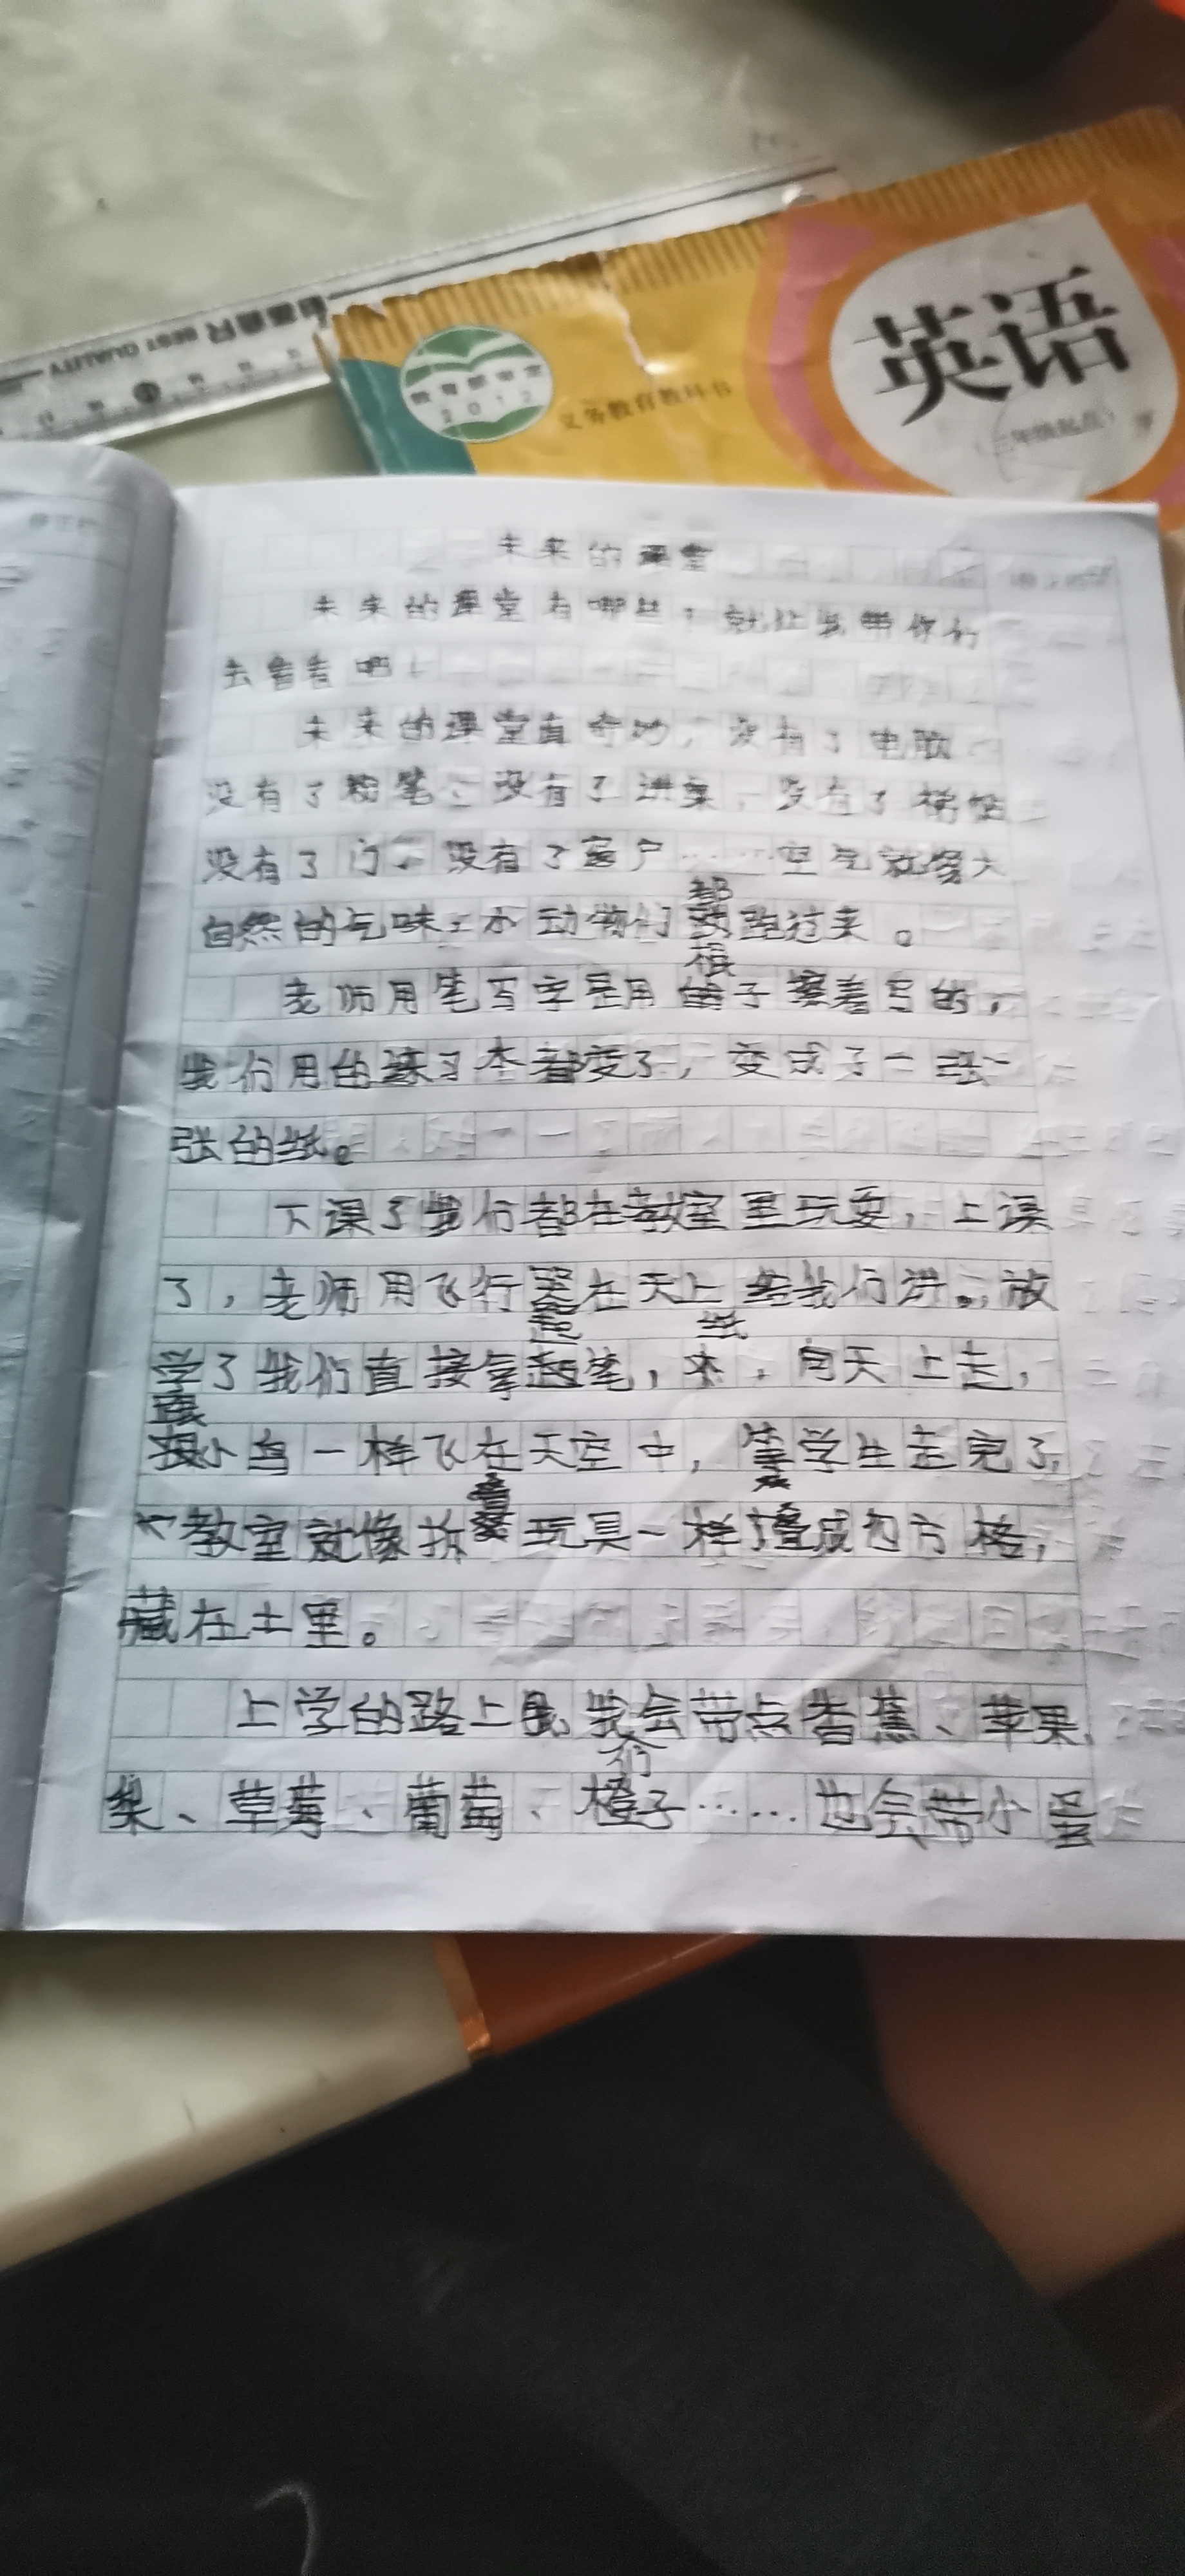 BEST QUALITY
教育部审定
2012
义务教育教科书
英语
(三年级起点)
未来的课堂
未来的课堂有哪些?就让我带你们
去看看吧!
未来的课堂真奇妙,没有了电脑
没有了粉笔、没有了讲桌,没有了
没有了门、没有了窗户……空气就像大
自然的气味,小动物们都跑过来。
老师用笔写字是用棍子擦着写的,
我们用的练习本都变了,变成了一张一
张的纸。
下课了我们都在教室里玩耍,上课
了,老师用飞行器在天上给我们讲。,放
学了我们直接拿起笔,本,向天上走,
纸
小鸟一样飞在天空中,等学生走完了,
教室就像折叠玩具一样叠成四方格,
藏在土里。
上学的路上 我们会带点香蕉、苹果、
梨、草莓、葡萄、橙子……也会带小